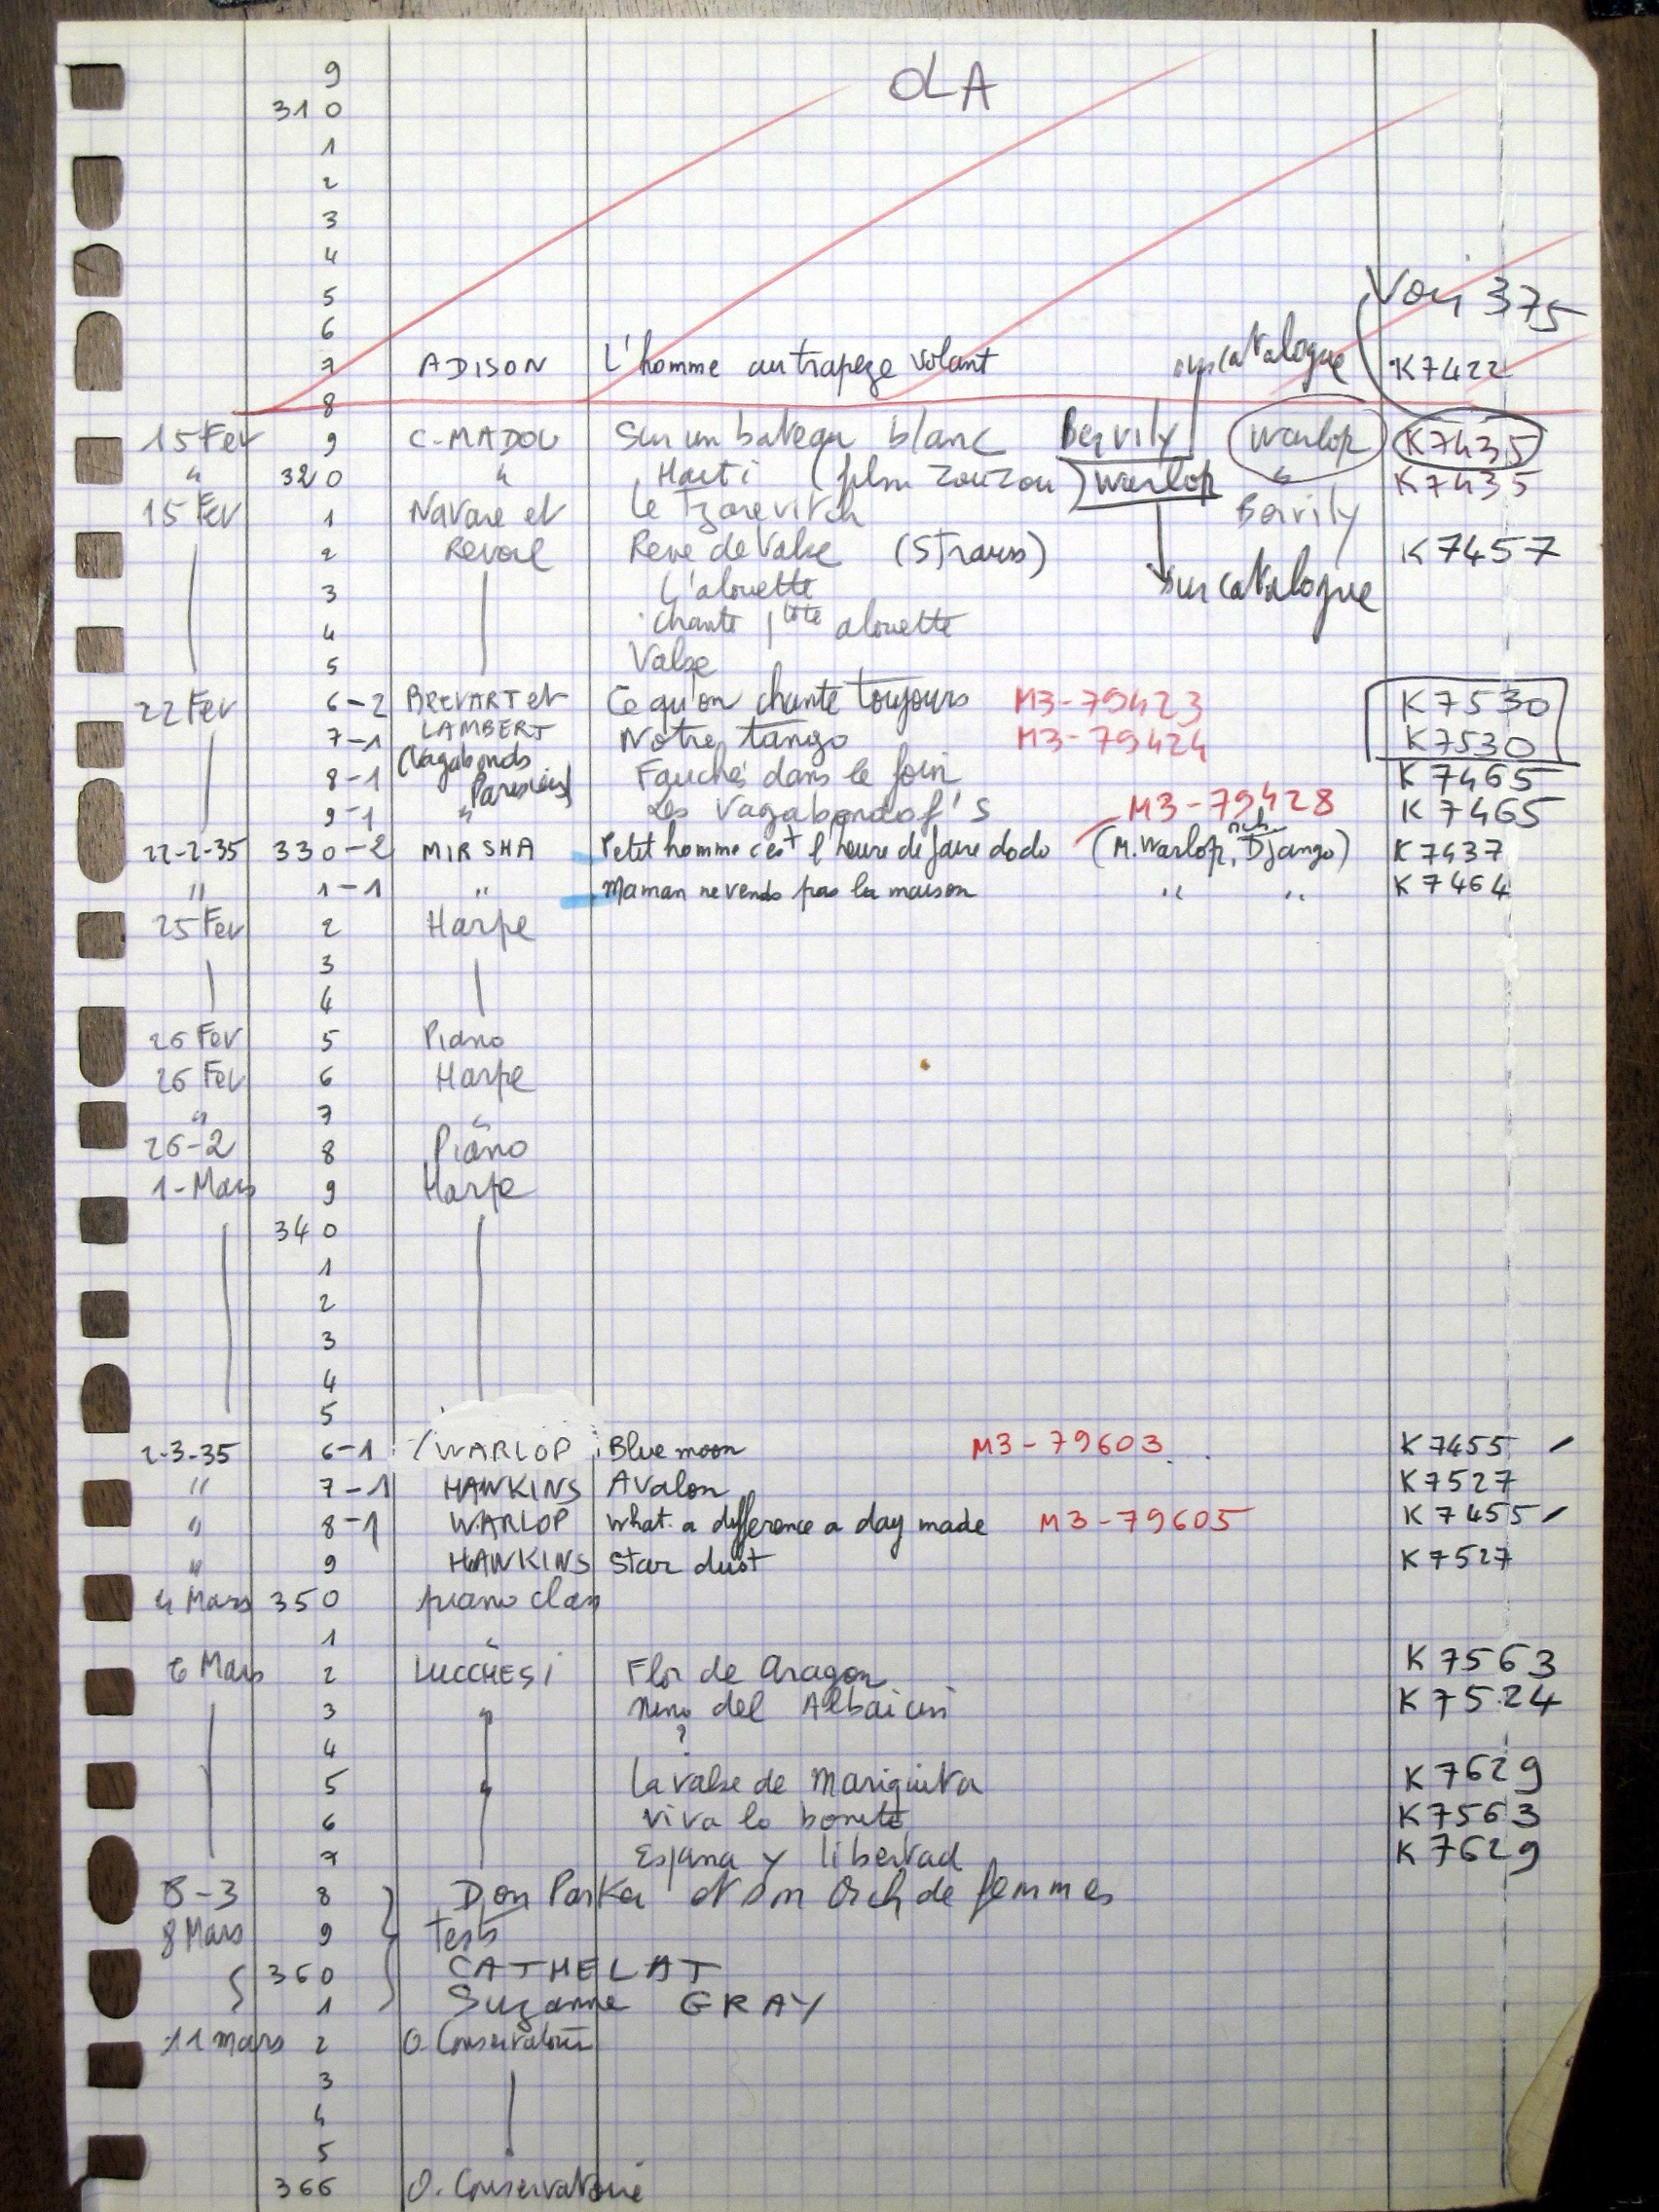 9 OLA
310
1
2
3
4
5 Voir 375
6 sur catalogue
7 ADISON L'homme au trapeze volant K7422
8
15 Fev 9 C-MADOU Sur un bateau blanc Bervily Warlop K7435
" 320 " Haiti (film Zouzou) Warlop " K7435
15 Fev 1 Navare et Le Tzarevitch Bervily
2 Revoil Reve de Valse (Strauss) K7457
3 L'alouette sur catalogue
4 Chante ptite alouette
5 Valse
22 Fev 6-2 BREVART et Ce qu'on chante toujours M3-79423 K7530
7-1 LAMBERT Notre tango M3-79424 K7530
8-1 (Vagabonds Parisiens) Fauchés dans le foin K7465
9-1 " Les Vagabondof's M3-79428 K7465
22-2-35 330-2 MIRSHA Petit homme c'est l'heure de faire dodo (M. Warlop, Django) K7437
" 1-1 " Maman ne vends pas la maison " " K7464
25 Fev 2 Harpe
3
4
26 Fev 5 Piano
26 Fev 6 Harpe
" 7 "
26-2 8 Piano
1-Mars 9 Harpe
340
1
2
3
4
5
2-3-35 6-1 WARLOP Blue moon M3-79603 K7455
" 7-1 HAWKINS Avalon K7527
" 8-1 WARLOP What a difference a day made M3-79605 K7455
" 9 HAWKINS Star dust K7527
4 Mars 350 piano clas
1 "
6 Mars 2 LUCCHESI Flor de Aragon K7563
3 " Nino del Albaicin K7524
4 ?
5 " La valse de Mariquita K7629
6 Viva lo bonito K7563
7 Espana y libertad K7629
8-3 8 Don Parker et son Orch de femmes
8 Mars 9 tests
360 CATHELAT
1 Suzanne GRAY
11 mars 2 O. Conservatoire
3
4
5
366 O. Conservatoire